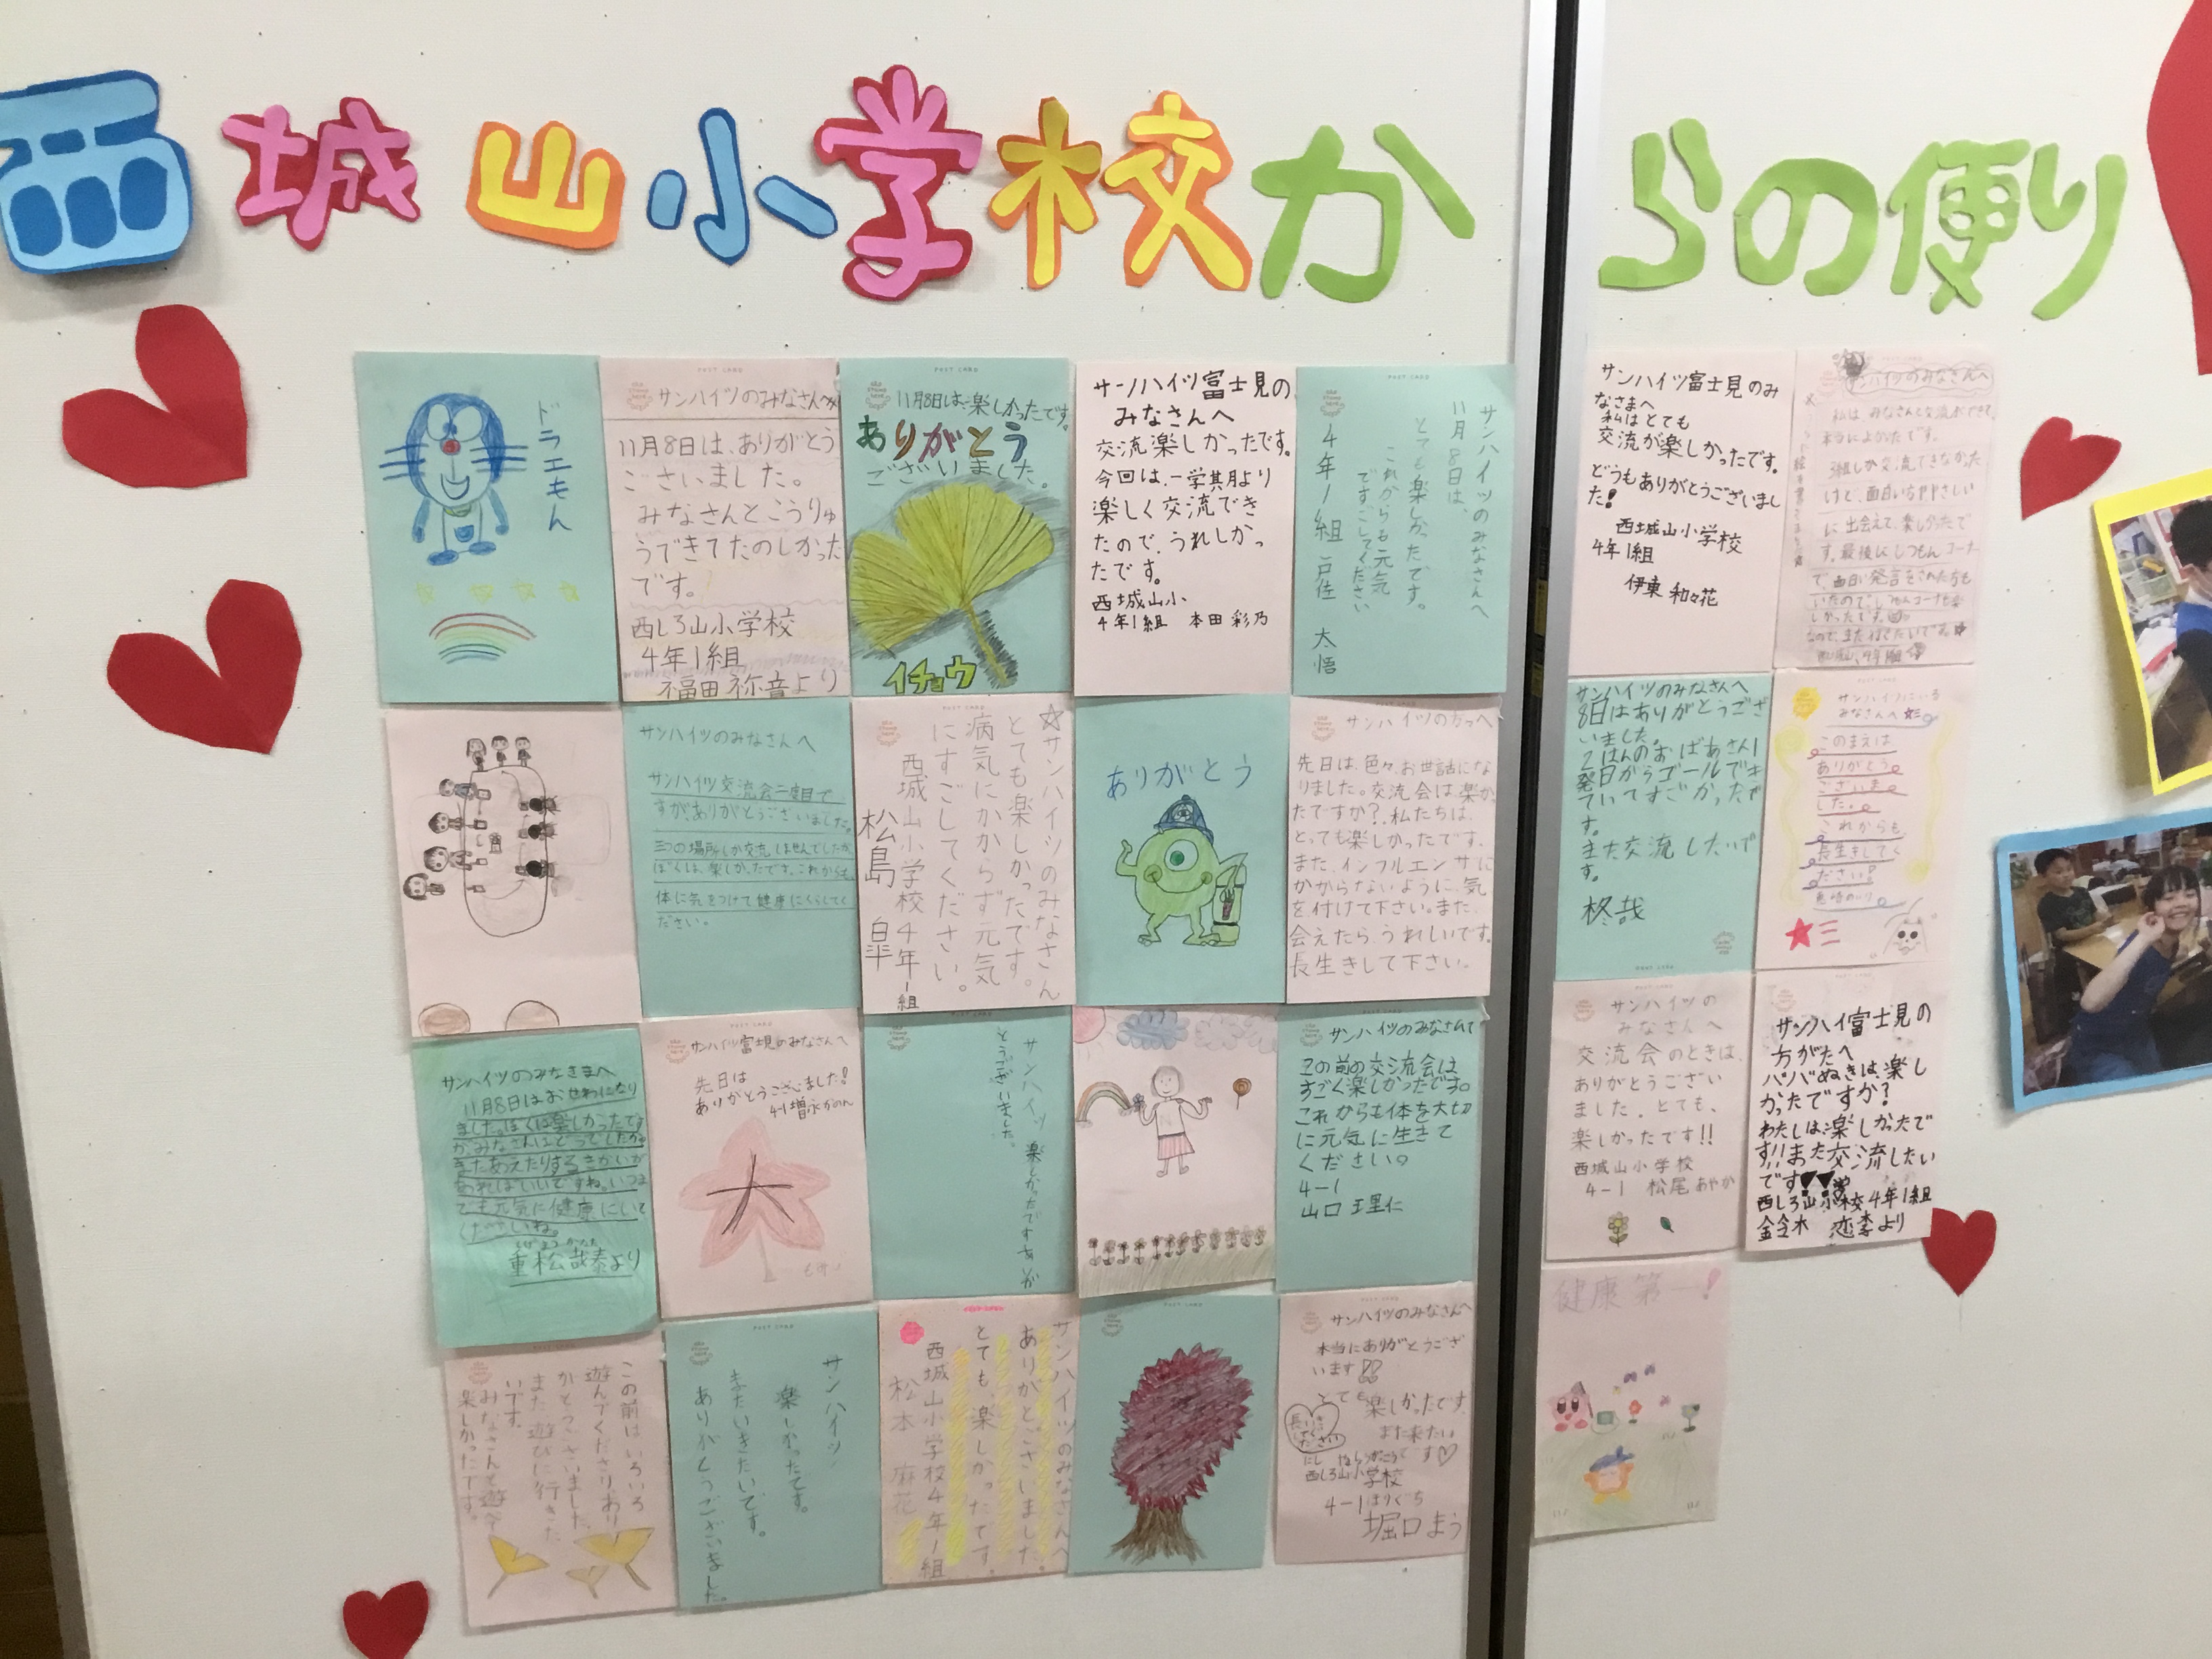 西城山小学校からの便り
ドラえもん
サンハイツのみなさんへ
11月8日は、ありがとう
ございました。
みなさんとこうりゅ
うできてたのしかった
です。
西しろ山小学校
4年1組
福田 祢音より
11月8日は楽しかったです。
ありがとう
ございました。
イチョウ
サンハイツ富士見の
みなさんへ
交流楽しかったです。
今回は、一学期より
楽しく交流でき
たので、うれしかっ
たです。
西城山小
4年1組 本田 彩乃
サンハイツのみなさんへ
11月8日は、
とても楽しかったです。
これからも元気
ですごしてください
4年1組 戸佳 太悟
サンハイツのみなさんへ
サンハイツ交流会二度目で
すが、ありがとうございました。
三つの場所しか交流しませんでしたが
ぼくは、楽しかったです。これからも
体に気をつけて健康にくらしてく
ださい。
☆サンハイツのみなさん
とても楽しかったです。
病気にかからず元気
にすごしてください。
西城山小学校4年1組
松島
ありがとう
サンハイツの方々へ
先日は、色々、お世話にな
りました。交流会は楽しか
ったですか?私たちは、
とっても楽しかったです。
また、インフルエンザに
かからないように、気
を付けて下さい。また、
会えたら、うれしいです。
長生きして下さい。
サンハイツのみなさまへ
11月8日はおせわになり
ました。ぼくは楽しかったです
が、みなさんはどうでしたか。
またあえたりするきかいが
あればいいですね。いつま
でも元気に健康にいて
くださいね。
重松哉泰より
サンハイツ富士見のみなさんへ
先日は
ありがとうございました!
4-1 増永かのん
サンハイツ 楽しかったですありが
とうございました。
サンハイツのみなさんへ
この前の交流会は
すごく楽しかったです。
これからも体を大切
に元気に生きて
ください。
4-1
山口 理仁
この前はいろいろ
遊んでくださりあり
がとうございました。
また遊びに行きた
いです。
みなさんと遊べて
楽しかったです。
サンハイツ
楽しかったです。
またいきたいです。
ありがとうございました。
サンハイツのみなさんへ
ありがとございました。
とても、楽しかったです。
西城山小学校4年1組
松本 麻花
サンハイツのみなさんへ
本当にありがとうござ
います!!
とても楽しかったです
また来たい
です♡
長いきしてください
西しろ山小学校
4-1 ほりぐち
堀口 まう
サンハイツ富士見のみ
なさまへ
私はとても
交流が楽しかったです。
どうもありがとうございまし
た!
西城山小学校
4年1組
伊東 和々花
サンハイツのみなさんへ
私は みなさんと交流ができて、
本当によかったです。
3組しか交流できなかった
けど、面白い方ややさしい
に出会えて、楽しかったで
す。最後にしつもんコーナー
で面白い発言をされた方も
サンハイツのみなさんへ
8日はありがとうござ
いました。
2はんのおばあさん1
発目からゴールでき
ていてすごかったで
す。
また交流したいで
す。
柊哉
サンハイツにいる
みなさんへ
このまえは
ありがとう
ございま
した。
これからも
長生きしてく
ださい!
サンハイツの
みなさんへ
交流会のときは、
ありがとうござい
ました。とても、
楽しかったです!!
西城山小学校
4-1 松尾 あやか
サンハイ富士見の
方がたへ
ババぬきは、楽し
かったですか?
わたしは楽しかったで
す!!また交流したい
です
西しろ山小学校4年1組
金令木 恋季より
健康第一!